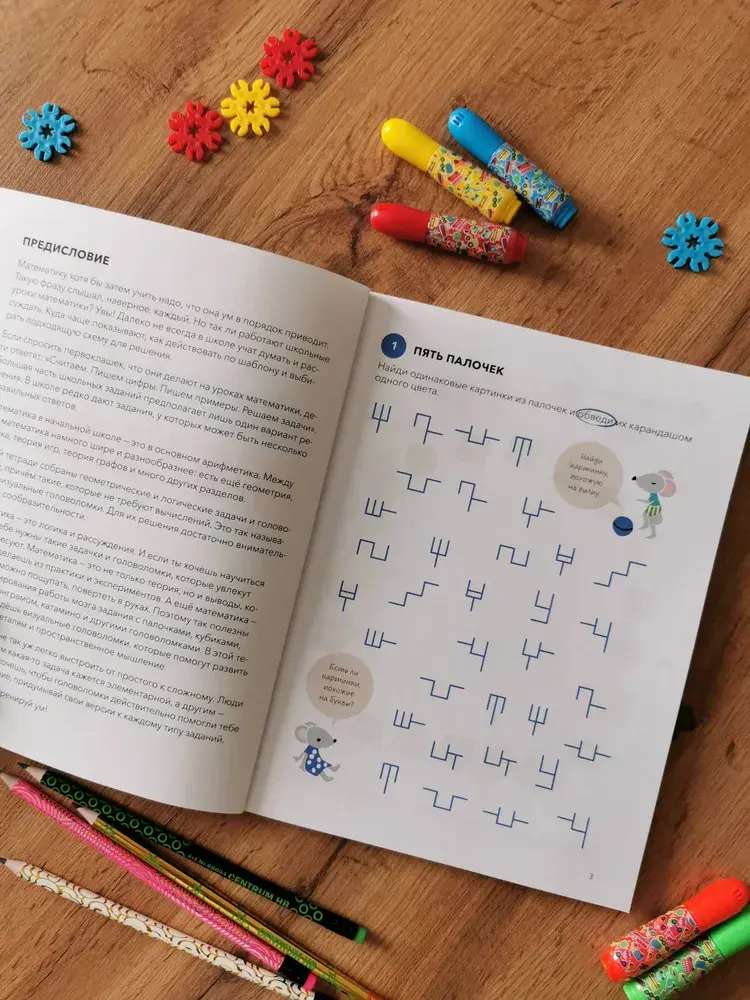 ПРЕДИСЛОВИЕ
Математику хотя бы затем учить надо, что она ум в порядок приводит.
Такую фразу слышал, наверное, каждый. Но так ли работают школьные
уроки математики? Увы! Далеко не всегда в школе учат думать и рас-
суждать. Куда чаще показывают, как действовать по шаблону и выби-
рать подходящую схему для решения.
Если спросить первоклашек, что они делают на уроках математики, де-
ти ответят: «Считаем. Пишем цифры. Пишем примеры. Решаем задачи».
большая часть школьных заданий предполагает лишь один вариант ре-
шения. В школе редко дают задания, у которых может быть несколько
авильных ответов.
тематика в начальной школе – это в основном арифметика. Между
математика намного шире и разнообразнее: есть ещё геометрия,
ка, теория игр, теория графов и много других разделов.
й тетради собраны геометрические и логические задачи и голово-
, причём такие, которые не требуют вычислений. Это так называ-
изуальные головоломки. Для их решения достаточно вниматель-
сообразительности.
ика – это логика и рассуждения. И если ты хочешь научиться
ебе нужны такие задачи и головоломки, которые увлекут
есуют. Математика – это не только теория, но и выводы, ко-
делаешь из практики и экспериментов. А ещё математика –
можно пощупать, повертеть в руках. Поэтому так полезны
ирования работы мозга задания с палочками, кубиками,
нграмом, катамино и другими головоломками. В этой те-
дёшь визуальные головоломки, которые помогут развить
еталям и пространственное мышление.
е так уж легко выстроить от простого к сложному. Люди
м какая-то задача кажется элементарной, а другим –
хочешь, чтобы головоломки действительно помогли тебе
ние, придумывай свои версии к каждому типу заданий.
ренируй ум!
1 ПЯТЬ ПАЛОЧЕК
Найди одинаковые картинки из палочек и обведи их карандашом
одного цвета.
Найди
картинку,
похожую
на вилку.
Есть ли
картинки,
похожие
на буквы?
3
CENTRUM HB